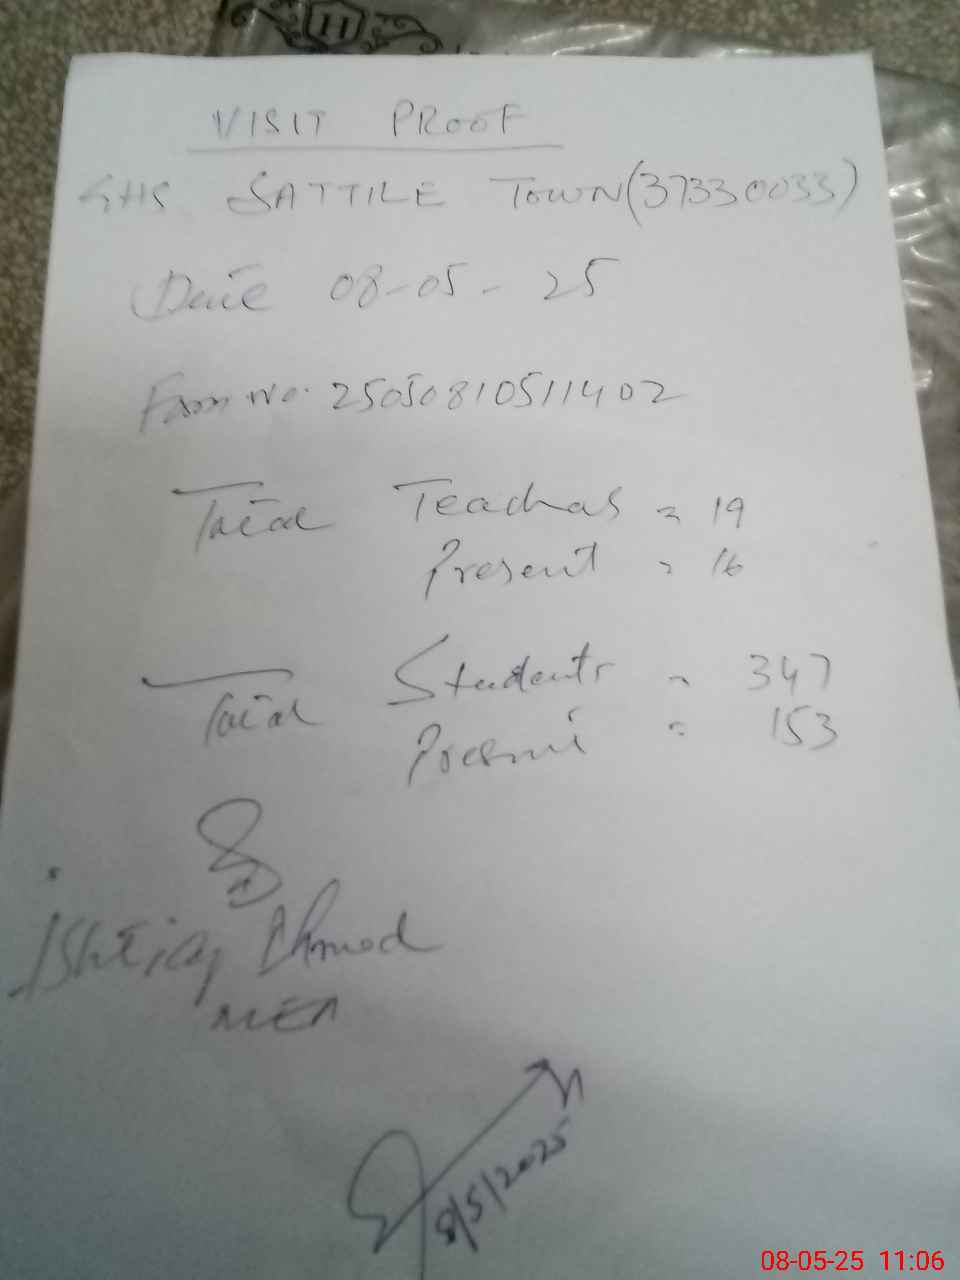 VISIT PROOF
GHS SATTILE TOWN (37330033)
Date 08-05-25
Form No. 25050810511402
Total Teachers = 19
Present = 16
Total Students = 347
Present = 153
Ishtiaq Ahmad
MEA
8/5/2025
08-05-25 11:06